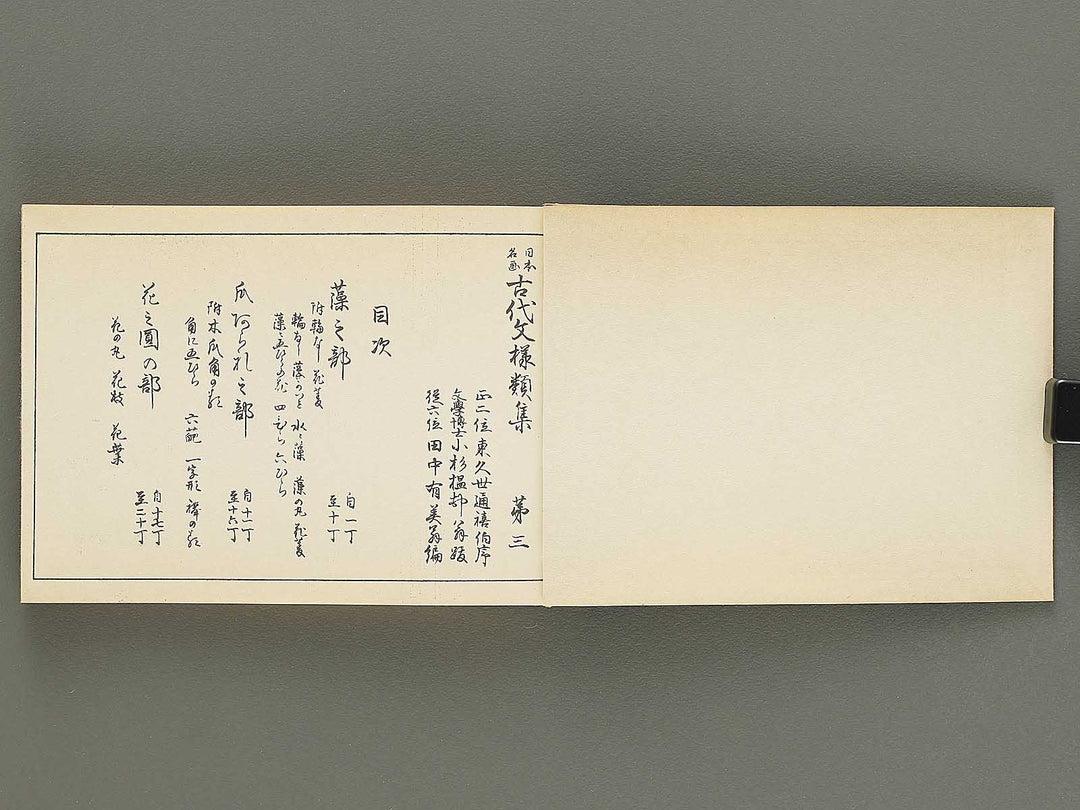 日本名画 古代文様類集 第三
正二位東久世通禧伯序
文學博士小杉榲邨翁跋
従六位田中有美翁編
目次
藻之部 自一丁 至十丁
附輪なし 花菱
輪なし藻かつミ 水ニ藻 藻の丸 花菱
藻ニ五ひらの花 四ひら 六ひら
瓜 之部 自十一丁 至十六丁
附木瓜角の類
角に五ひら 六葩 一字形 襷の類
花之圓の部 自十七丁 至二十丁
花の丸 花枝 花葉